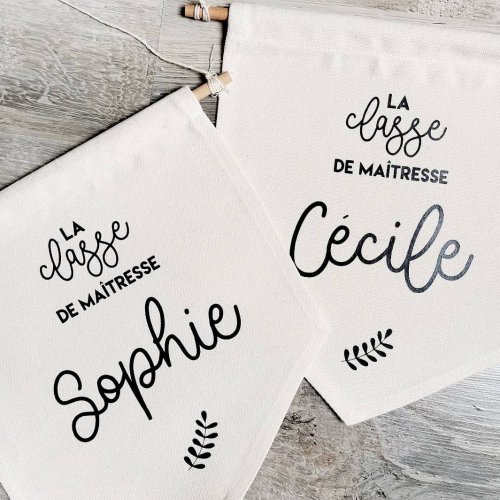 LA
classe
DE MAÎTRESSE
Sophie
LA
classe
DE MAÎTRESSE
Cécile